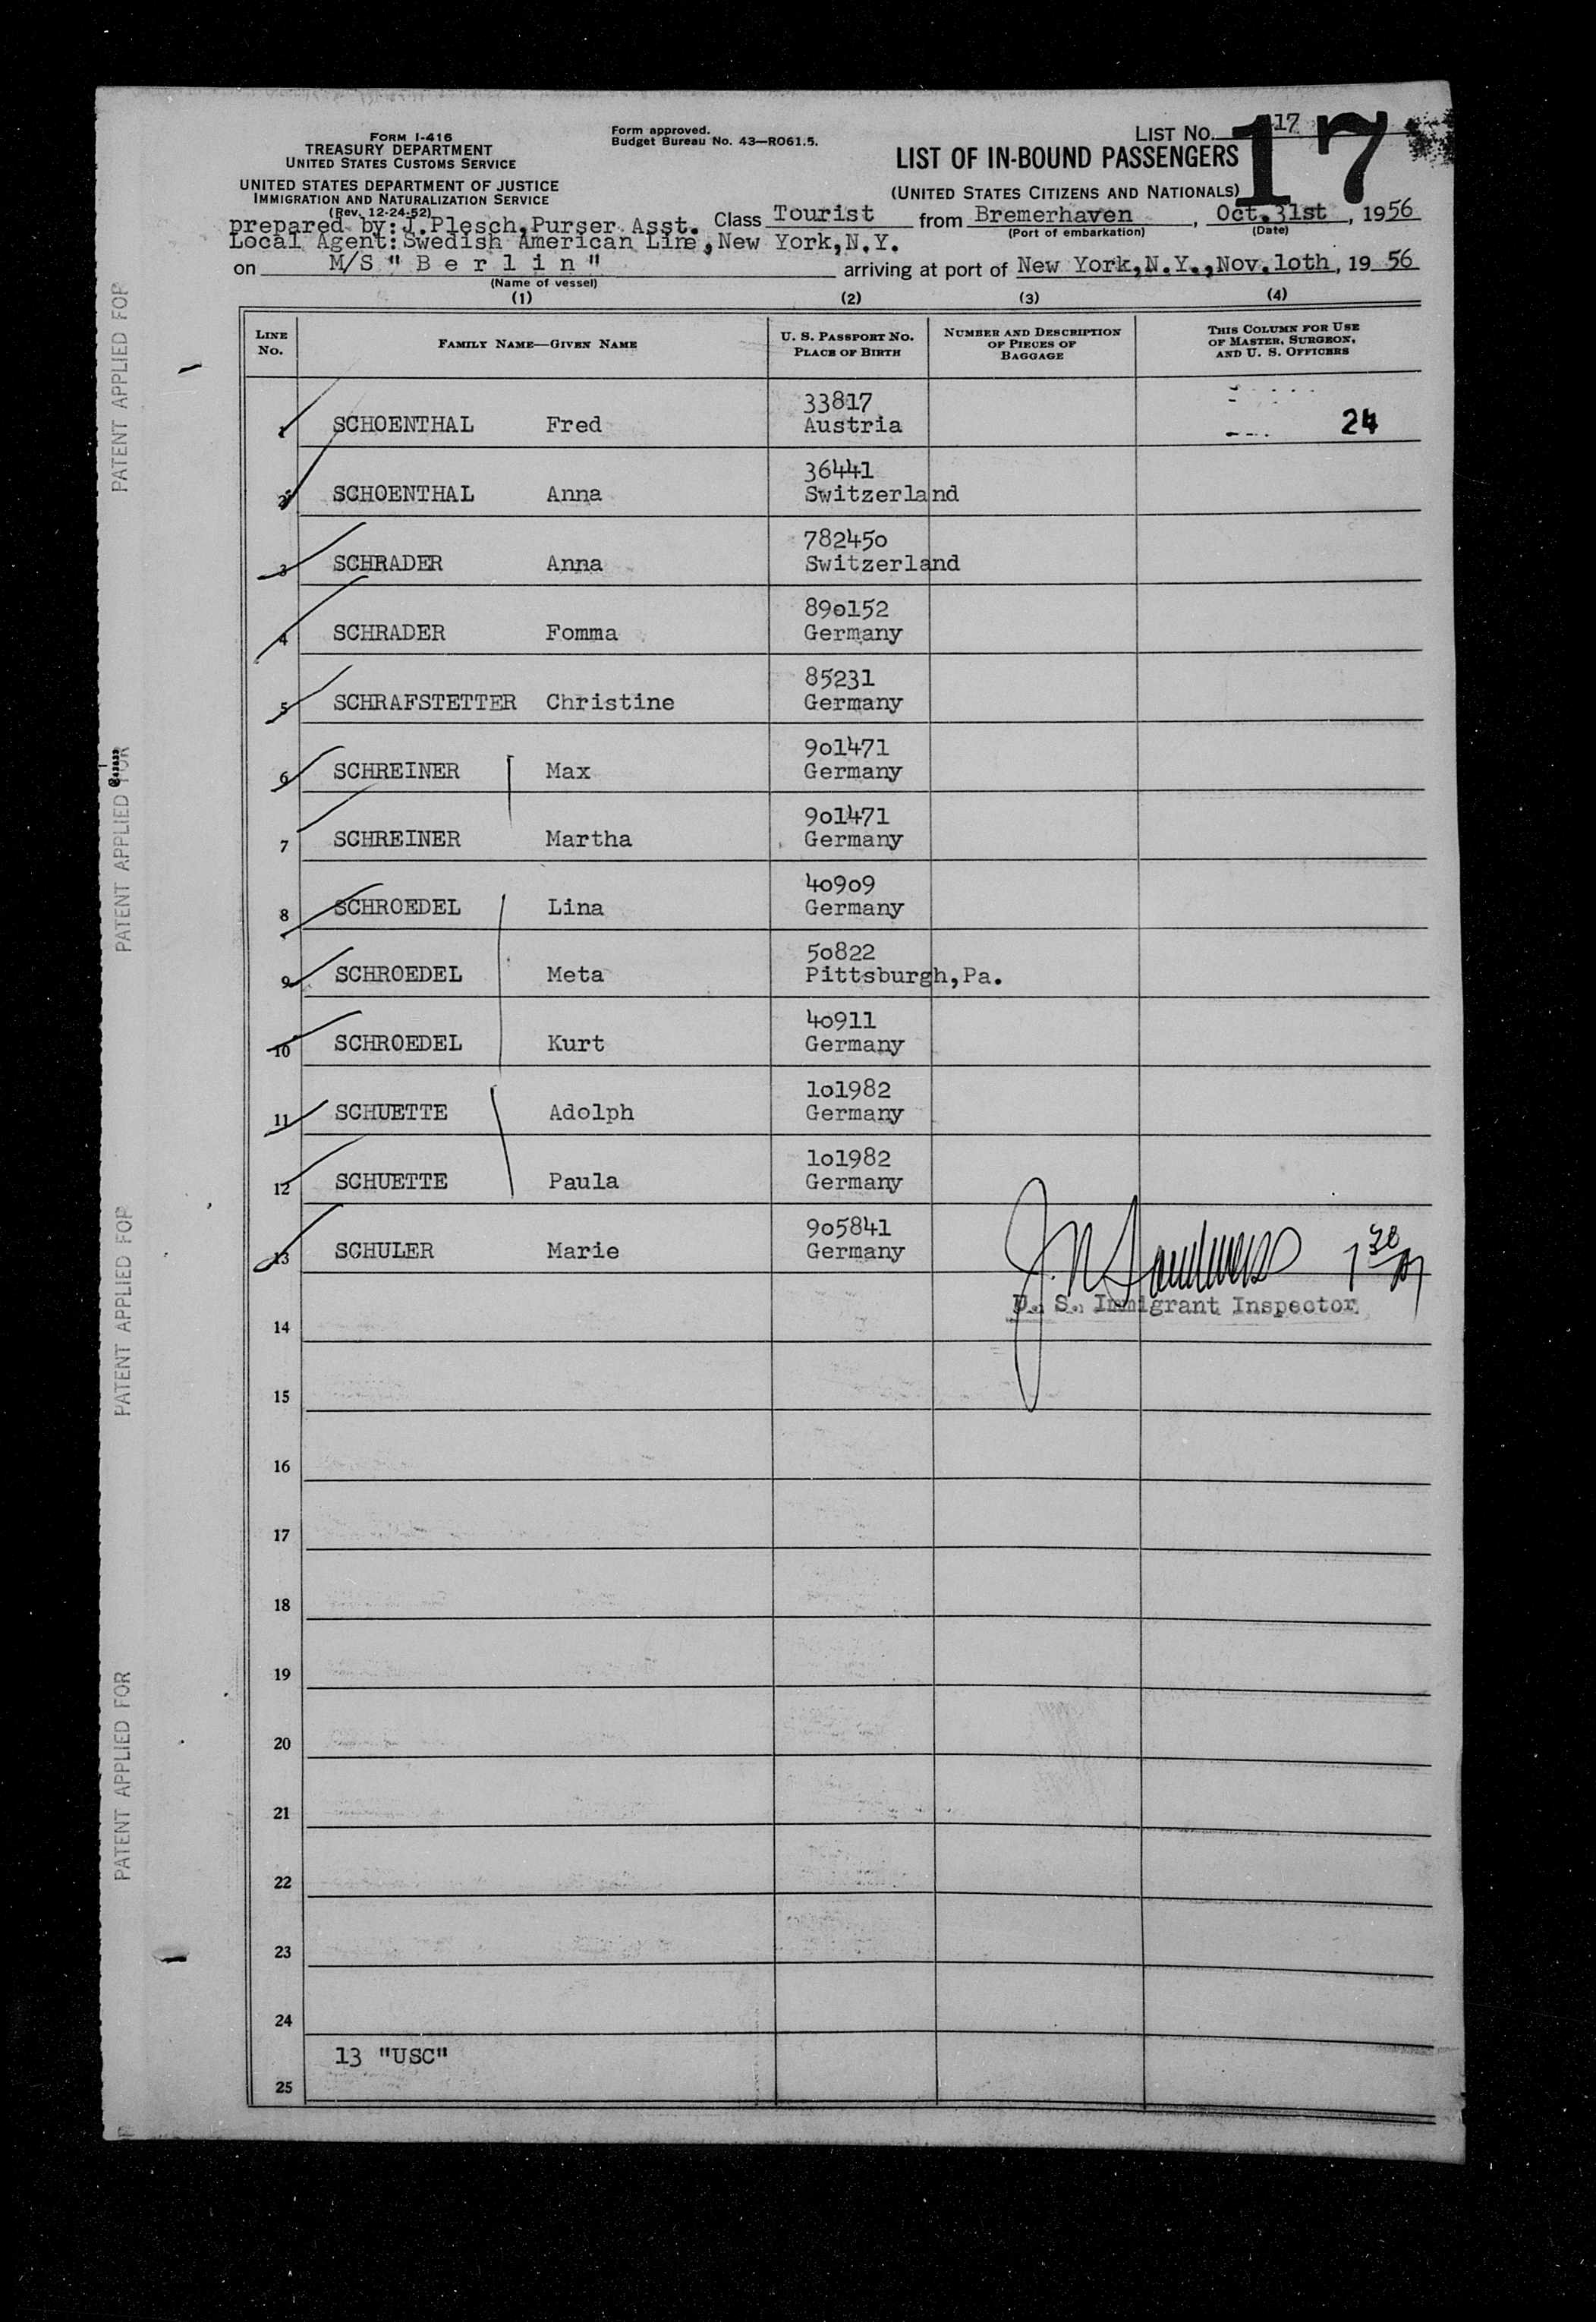 FORM I-416
TREASURY DEPARTMENT
UNITED STATES CUSTOMS SERVICE
UNITED STATES DEPARTMENT OF JUSTICE
IMMIGRATION AND NATURALIZATION SERVICE
(Rev. 12-24-52)
Form approved.
Budget Bureau No. 43—R061.5.
LIST NO. 17
17
LIST OF IN-BOUND PASSENGERS
(UNITED STATES CITIZENS AND NATIONALS)
prepared by:J.Plesch,Purser Asst. Class Tourist from Bremerhaven, Oct.31st, 1956
(Port of embarkation) (Date)
Local Agent:Swedish American Line,New York,N.Y.
on M/S "B e r l i n" arriving at port of New York,N.Y.,Nov.1oth, 19 56
(Name of vessel)
(1) (2) (3) (4)
LINE No. FAMILY NAME—GIVEN NAME U. S. PASSPORT NO. PLACE OF BIRTH NUMBER AND DESCRIPTION OF PIECES OF BAGGAGE THIS COLUMN FOR USE OF MASTER, SURGEON, AND U. S. OFFICERS
33817
1 SCHOENTHAL Fred Austria 24
36441
2 SCHOENTHAL Anna Switzerland
78245o
3 SCHRADER Anna Switzerland
89o152
4 SCHRADER Fomma Germany
85231
5 SCHRAFSTETTER Christine Germany
9o1471
6 SCHREINER Max Germany
9o1471
7 SCHREINER Martha Germany
4o9o9
8 SCHROEDEL Lina Germany
5o822
9 SCHROEDEL Meta Pittsburgh,Pa.
4o911
10 SCHROEDEL Kurt Germany
1o1982
11 SCHUETTE Adolph Germany
1o1982
12 SCHUETTE Paula Germany
9o5841
13 SCHULER Marie Germany
U. S. Immigrant Inspector
14
15
16
17
18
19
20
21
22
23
24
13 "USC"
25
PATENT APPLIED FOR
PATENT APPLIED FOR
PATENT APPLIED FOR
PATENT APPLIED FOR